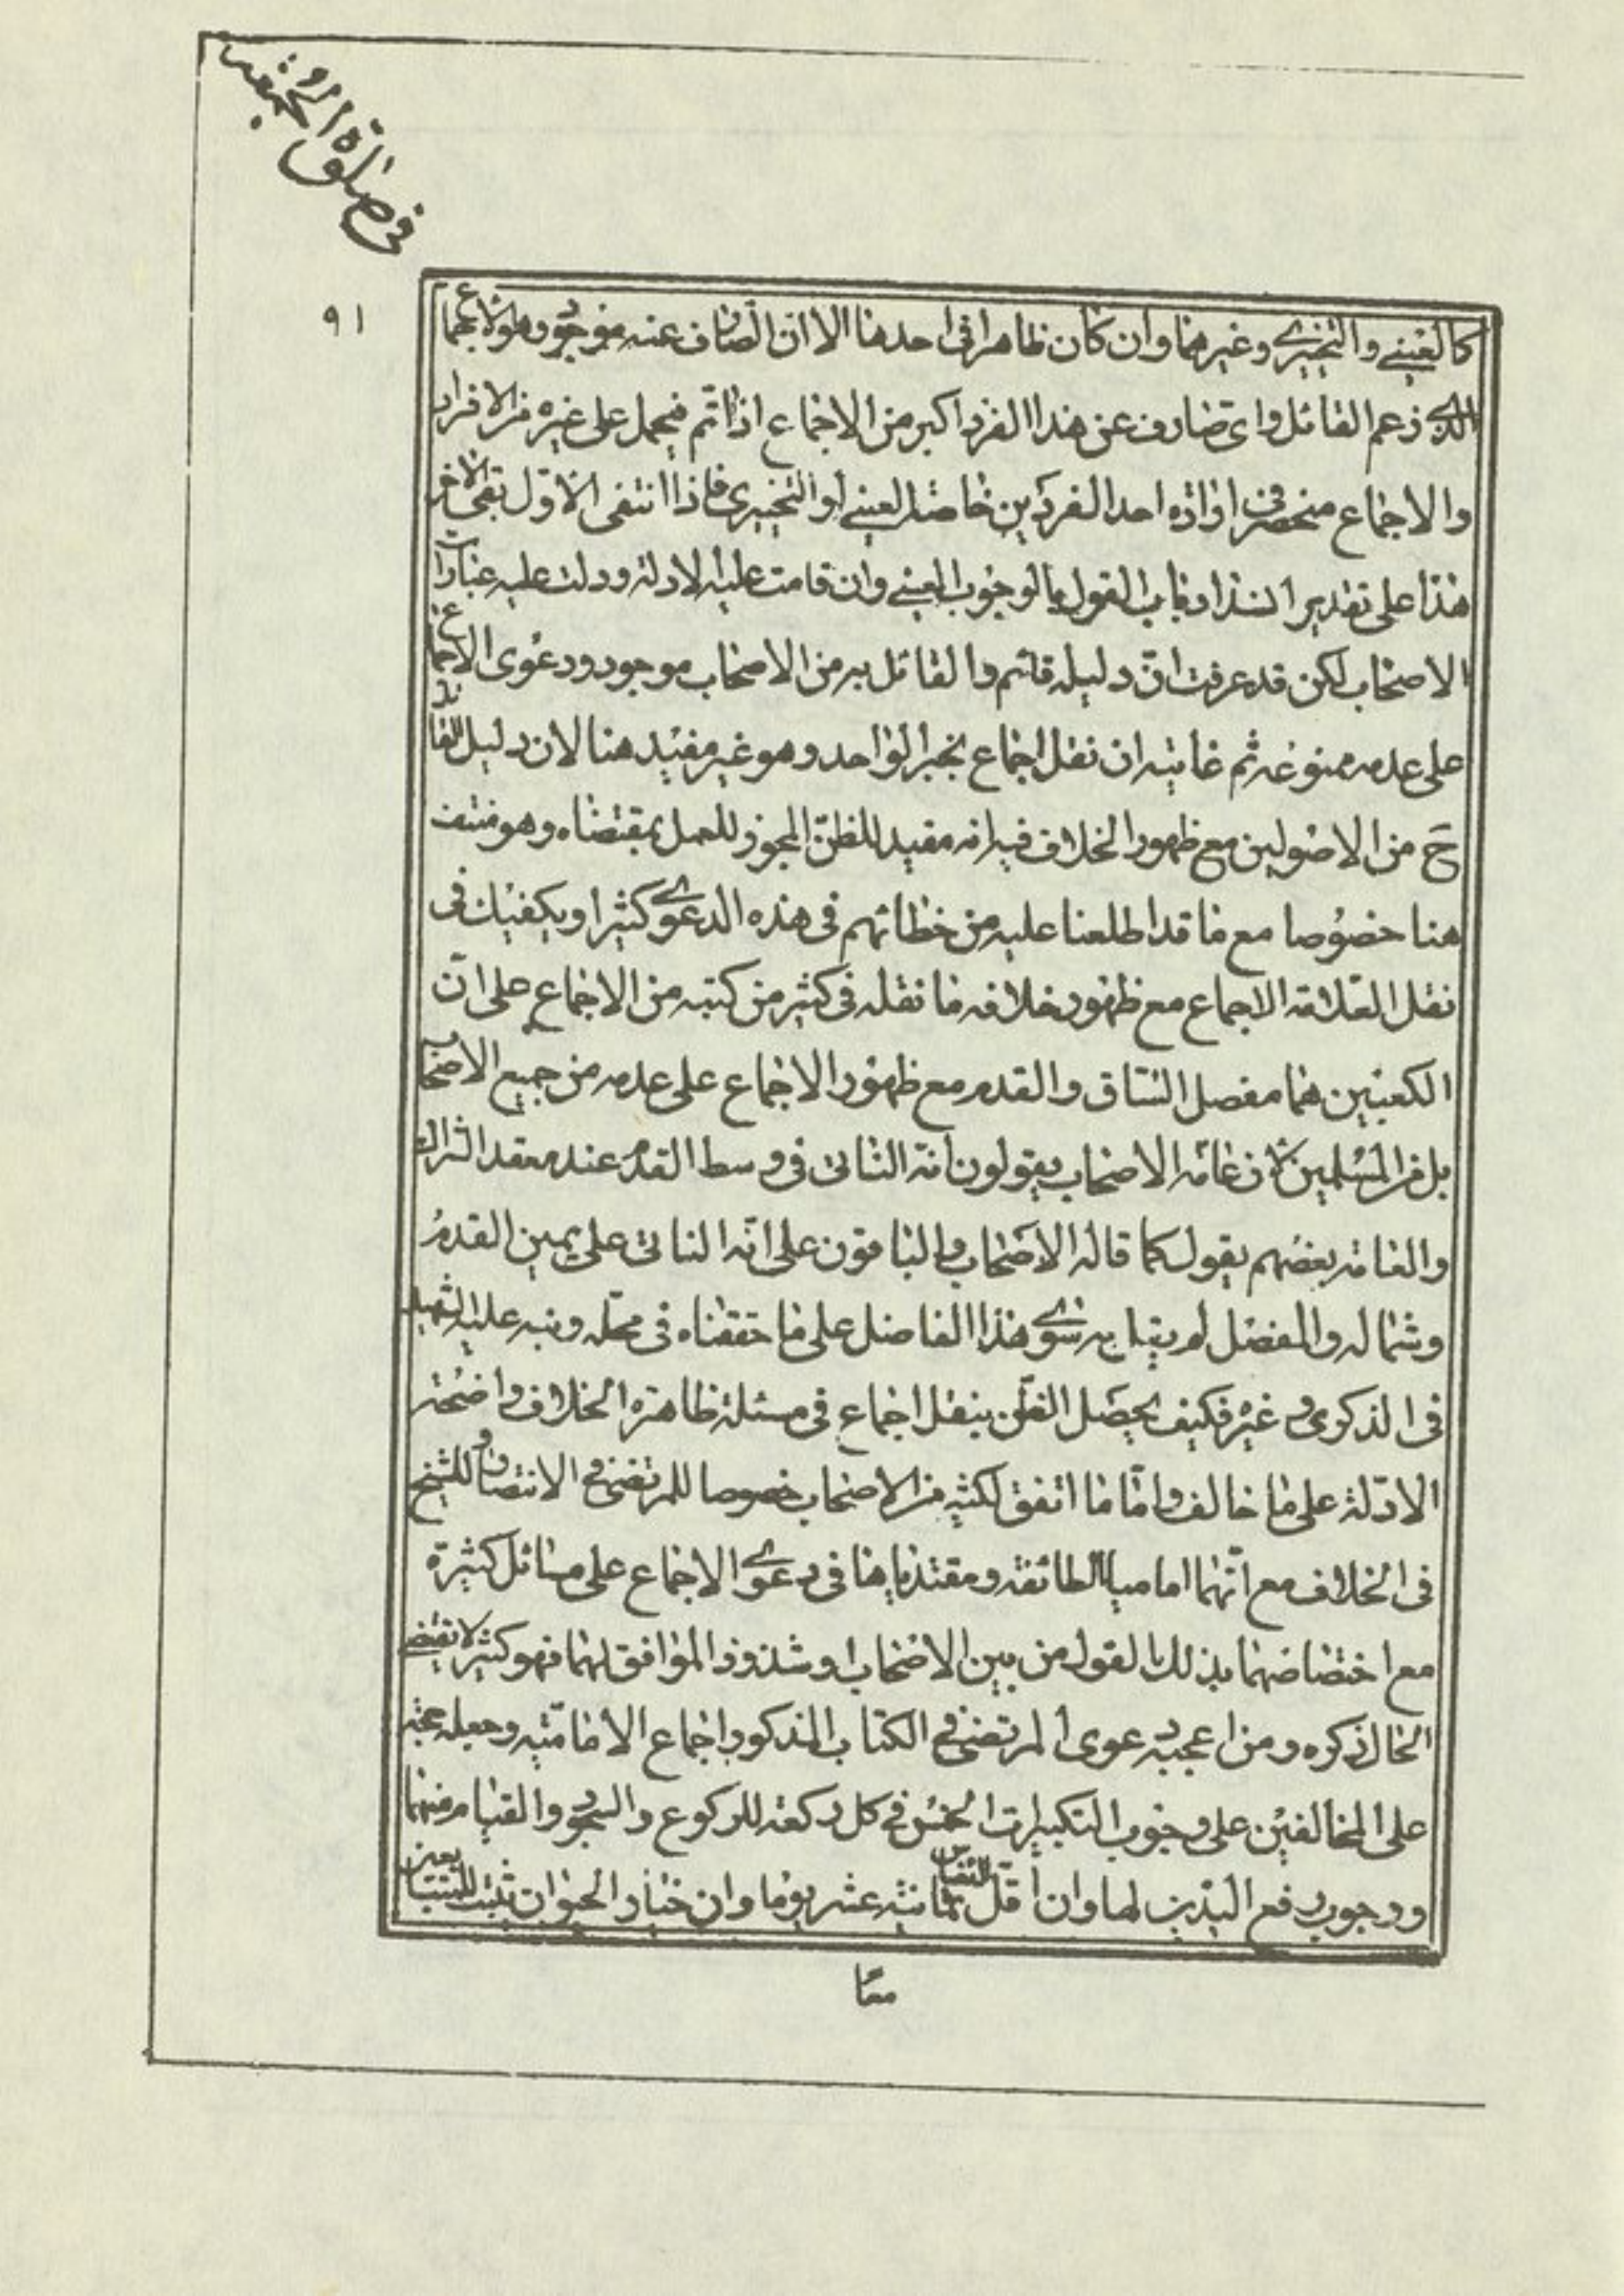 في صلوة الجمعة
٩١
كالعيني والتخييري وغيرهما وان كان ظاهرا في احدهما الا ان الصارف عنه موجود وهو الاجماع
الذي زعم القائل واى صارف عن هذا الفرد اكبر من الاجماع اذا تم فيحمل على غيره من الافراد
والاجماع منحصر في ارادة احد الفردين خاصة العيني او التخييري فاذا انتفى الاول بقى الاخر
هذا على تقدير القول بالوجوب العيني وان قامت عليه الادلة ودلت عليه عبارات
الاصحاب لكن قد عرفت ان دليله قائم والقائل به من الاصحاب موجود ودعوى الاجماع
على عدمه ممنوعة ثم غايته ان نقل اجماع بخبر الواحد وهو غير مفيد هنا لان دليل القائل
ح من الاصوليين مع ظهور الخلاف فيه انه مفيد للظن المجوز للعمل بمقتضاه وهو منتف
هنا خصوصا مع ما قد اطلعنا عليه من خطائهم في هذه الدعوى كثيرا ويكفيك في
نقل العلامة الاجماع مع ظهور خلافه ما نقله في كثير من كتبه من الاجماع على ان
الكعبين هما مفصل الساق والقدم مع ظهور الاجماع على عدمه من جميع الاصحاب
بل من المسلمين لان عامة الاصحاب يقولون انه الناتى في وسط القدم عند معقد الشراك
والعامة بعضهم يقول كما قاله الاصحاب والباقون على انه الناتى على يمين القدم
وشماله والمفصل لم يقل به سوى هذا الفاضل على ما حققناه في محله ونبه عليه الشهيد
في الذكرى وغيره فكيف يحصل الظن بنقل اجماع في مسئلة ظاهرة الخلاف واضحة
الادلة على ما خالف واما ما اتفق لكثير من الاصحاب خصوصا للمرتضى في الانتصار وللشيخ
في الخلاف مع انهما اماما الطائفة ومقتدياها في دعوى الاجماع على مسائل كثيرة
مع اختصاصهما بذلك القول من بين الاصحاب او شذوذ الموافق لهما فهو كثير لا يقتضي
الحال ذكره ومن اعجبه دعوى المرتضى في الكتاب المذكور اجماع الامامية وجعله حجة
على المخالفين على وجوب التكبيرات الخمس في كل ركعة للركوع والسجود والقيام منهما
ووجوب رفع اليدين لها وان اقل النفاس ثمانية عشر يوما وان خيار الحيوان يثبت للمتبايعين
معا